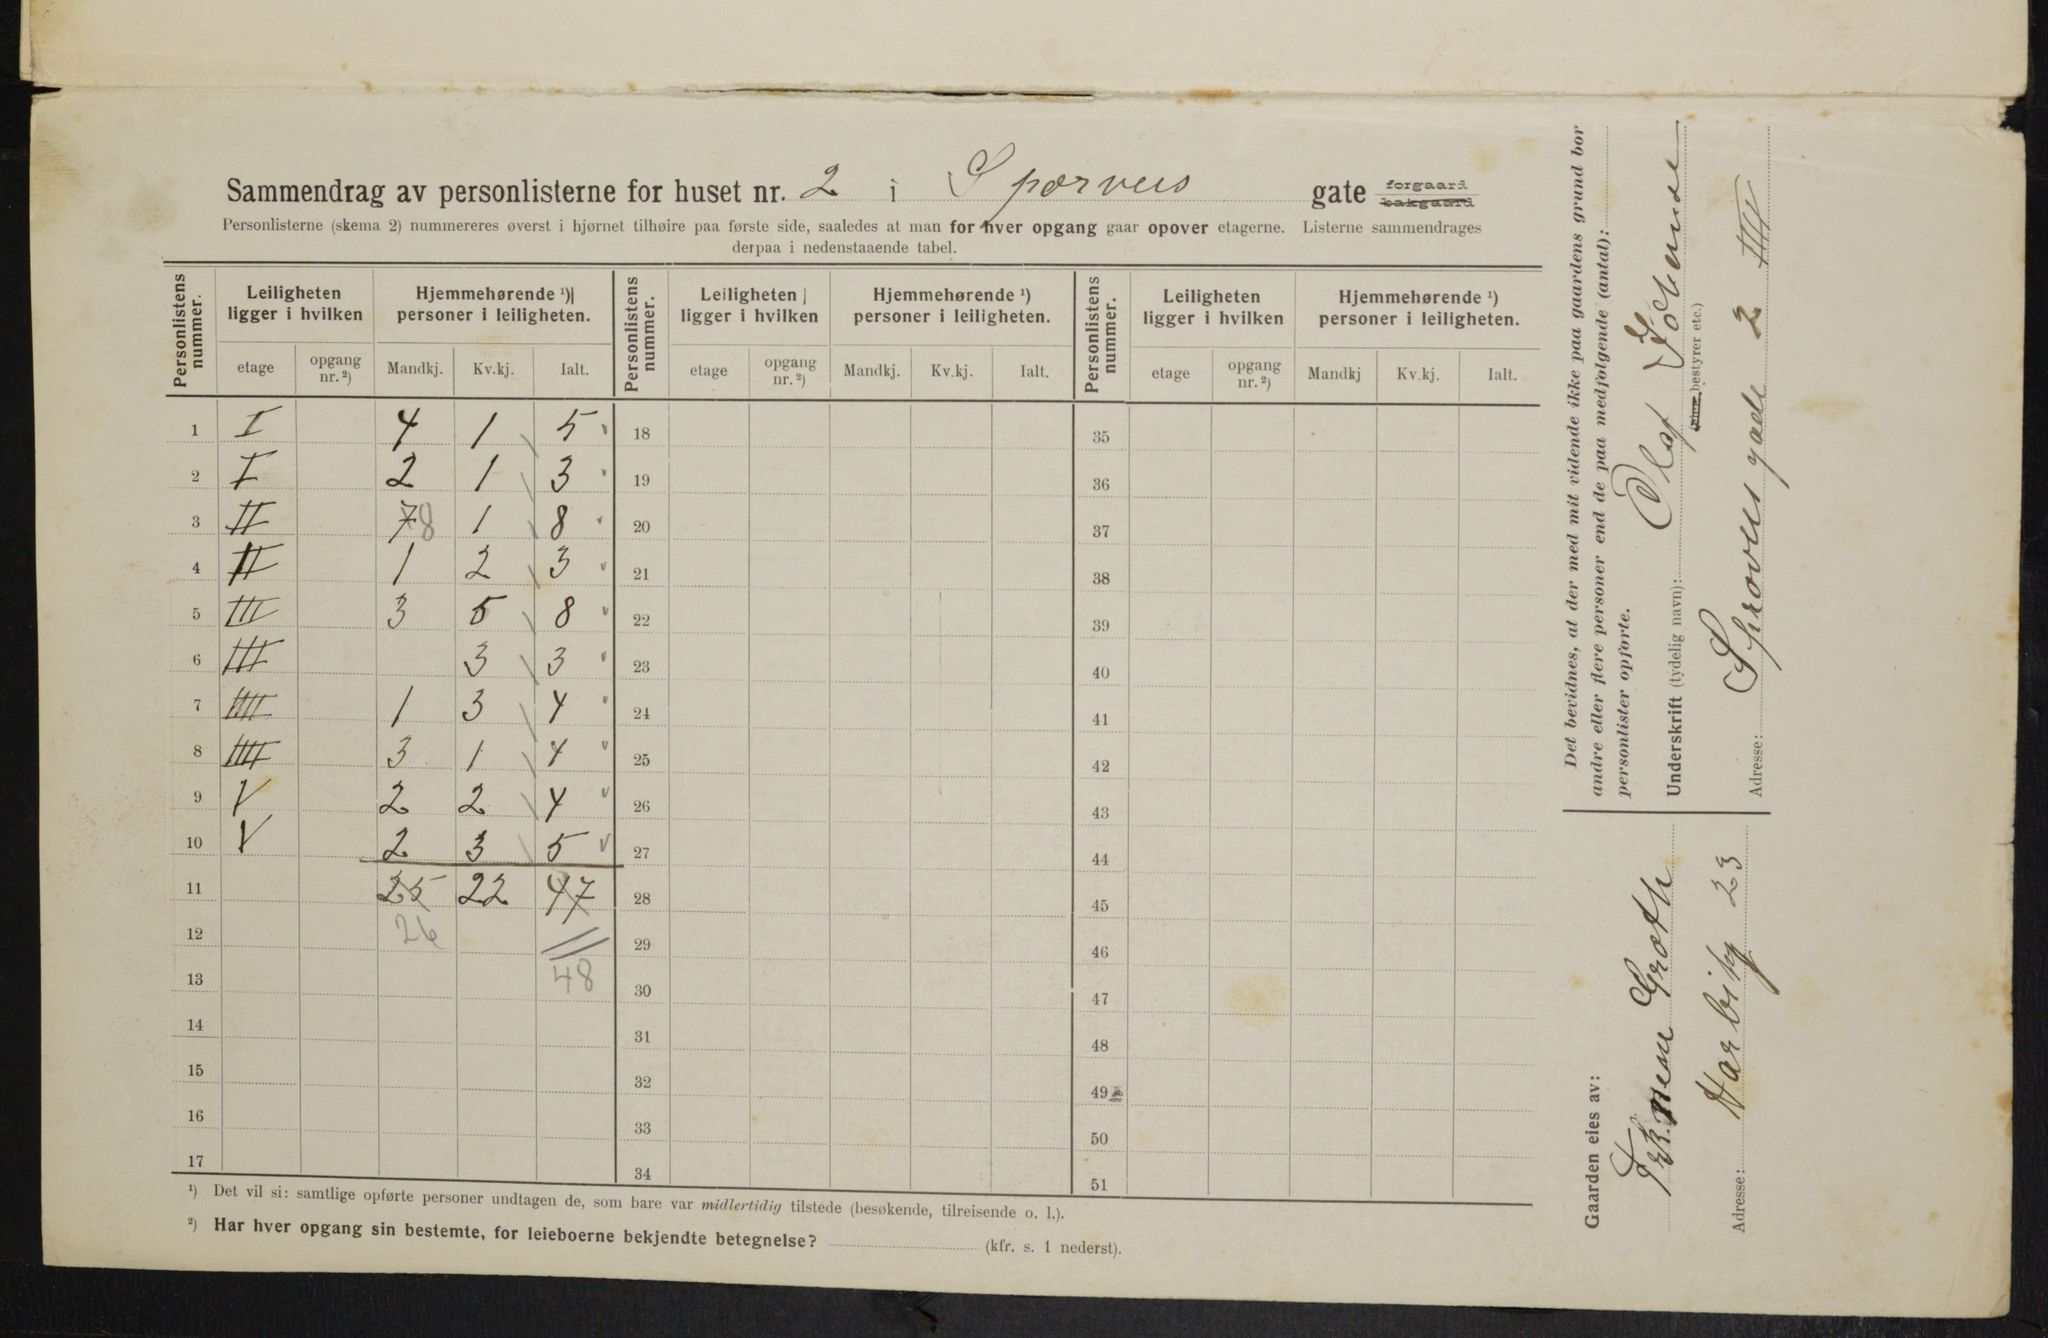 Sammendrag av personlisterne for huset nr. 2 i Sporveis gate forgaard bakgaard
Personlisterne (skema 2) nummereres øverst i hjørnet tilhøire paa første side, saaledes at man for hver opgang gaar opover etagerne. Listerne sammendrages
derpaa i nedenstaaende tabel.
Personlistens nummer. Leiligheten ligger i hvilken Hjemmehørende ¹) personer i leiligheten. Personlistens nummer. Leiligheten ligger i hvilken Hjemmehørende ¹) personer i leiligheten. Personlistens nummer. Leiligheten ligger i hvilken Hjemmehørende ¹) personer i leiligheten.
etage opgang nr. ²) Mandkj. Kv.kj. Ialt. etage opgang nr. ²) Mandkj. Kv.kj. Ialt. etage opgang nr. ²) Mandkj Kv.kj. Ialt.
1 I 4 1 5 18 35
2 I 2 1 3 19 36
3 II 7 8 1 8 20 37
4 II 1 2 3 21 38
5 III 3 5 8 22 39
6 III 3 3 23 40
7 IIII 1 3 4 24 41
8 IIII 3 1 4 25 42
9 V 2 2 4 26 43
10 V 2 3 5 27 44
11 25 22 47 28 45
12 26 29 46
13 48 30 47
14 31 48
15 32 49
16 33 50
17 34 51
¹) Det vil si: samtlige opførte personer undtagen de, som bare var midlertidig tilstede (besøkende, tilreisende o. l.).
²) Har hver opgang sin bestemte, for leieboerne bekjendte betegnelse? (kfr. s. 1 nederst).
Det bevidnes, at der med mit vidende ikke paa gaardens grund bor
andre eller flere personer end de paa medfølgende (antal):
personlister opførte.
Underskrift (tydelig navn): Olaf
bestyrer etc.)
Adresse: Sporveisgade 2 IIII
Gaarden eies av:
Groth
Adresse: 23